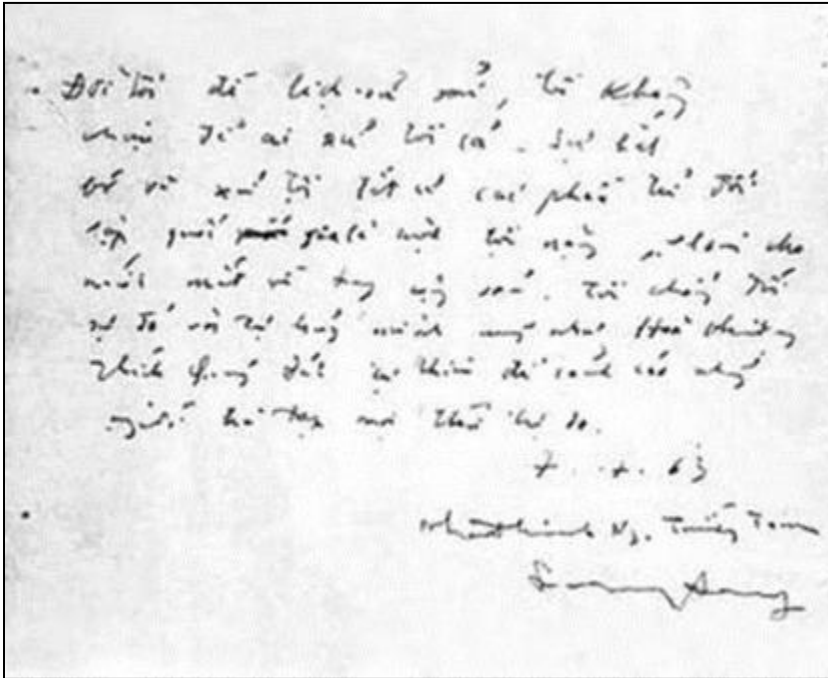 Đời tôi để lịch-sử xử, tôi không
chịu để ai xử tôi cả. Sự bắt
bớ và xử tội tất cả các phần tử đối
lập quốc gia là một tội nặng, sẽ làm cho
nước mất về tay cộng sản. Tôi chống đối
sự đó và tự huỷ mình cũng như Hoà thượng
Thích Quảng Đức tự thiêu để cảnh cáo những
người chà đạp mọi thứ tự do.
7-7-63
Nhất Linh Ng. Tường Tam